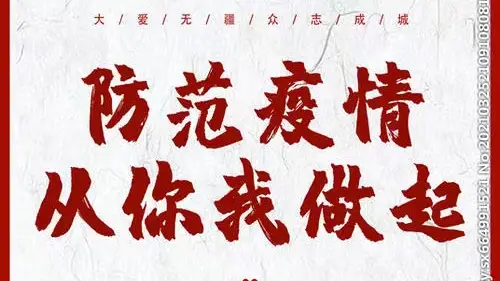 大/爱/无/疆/众/志/成/城
防范疫情
从你我做起
y sx664991521 No 20210325210910808